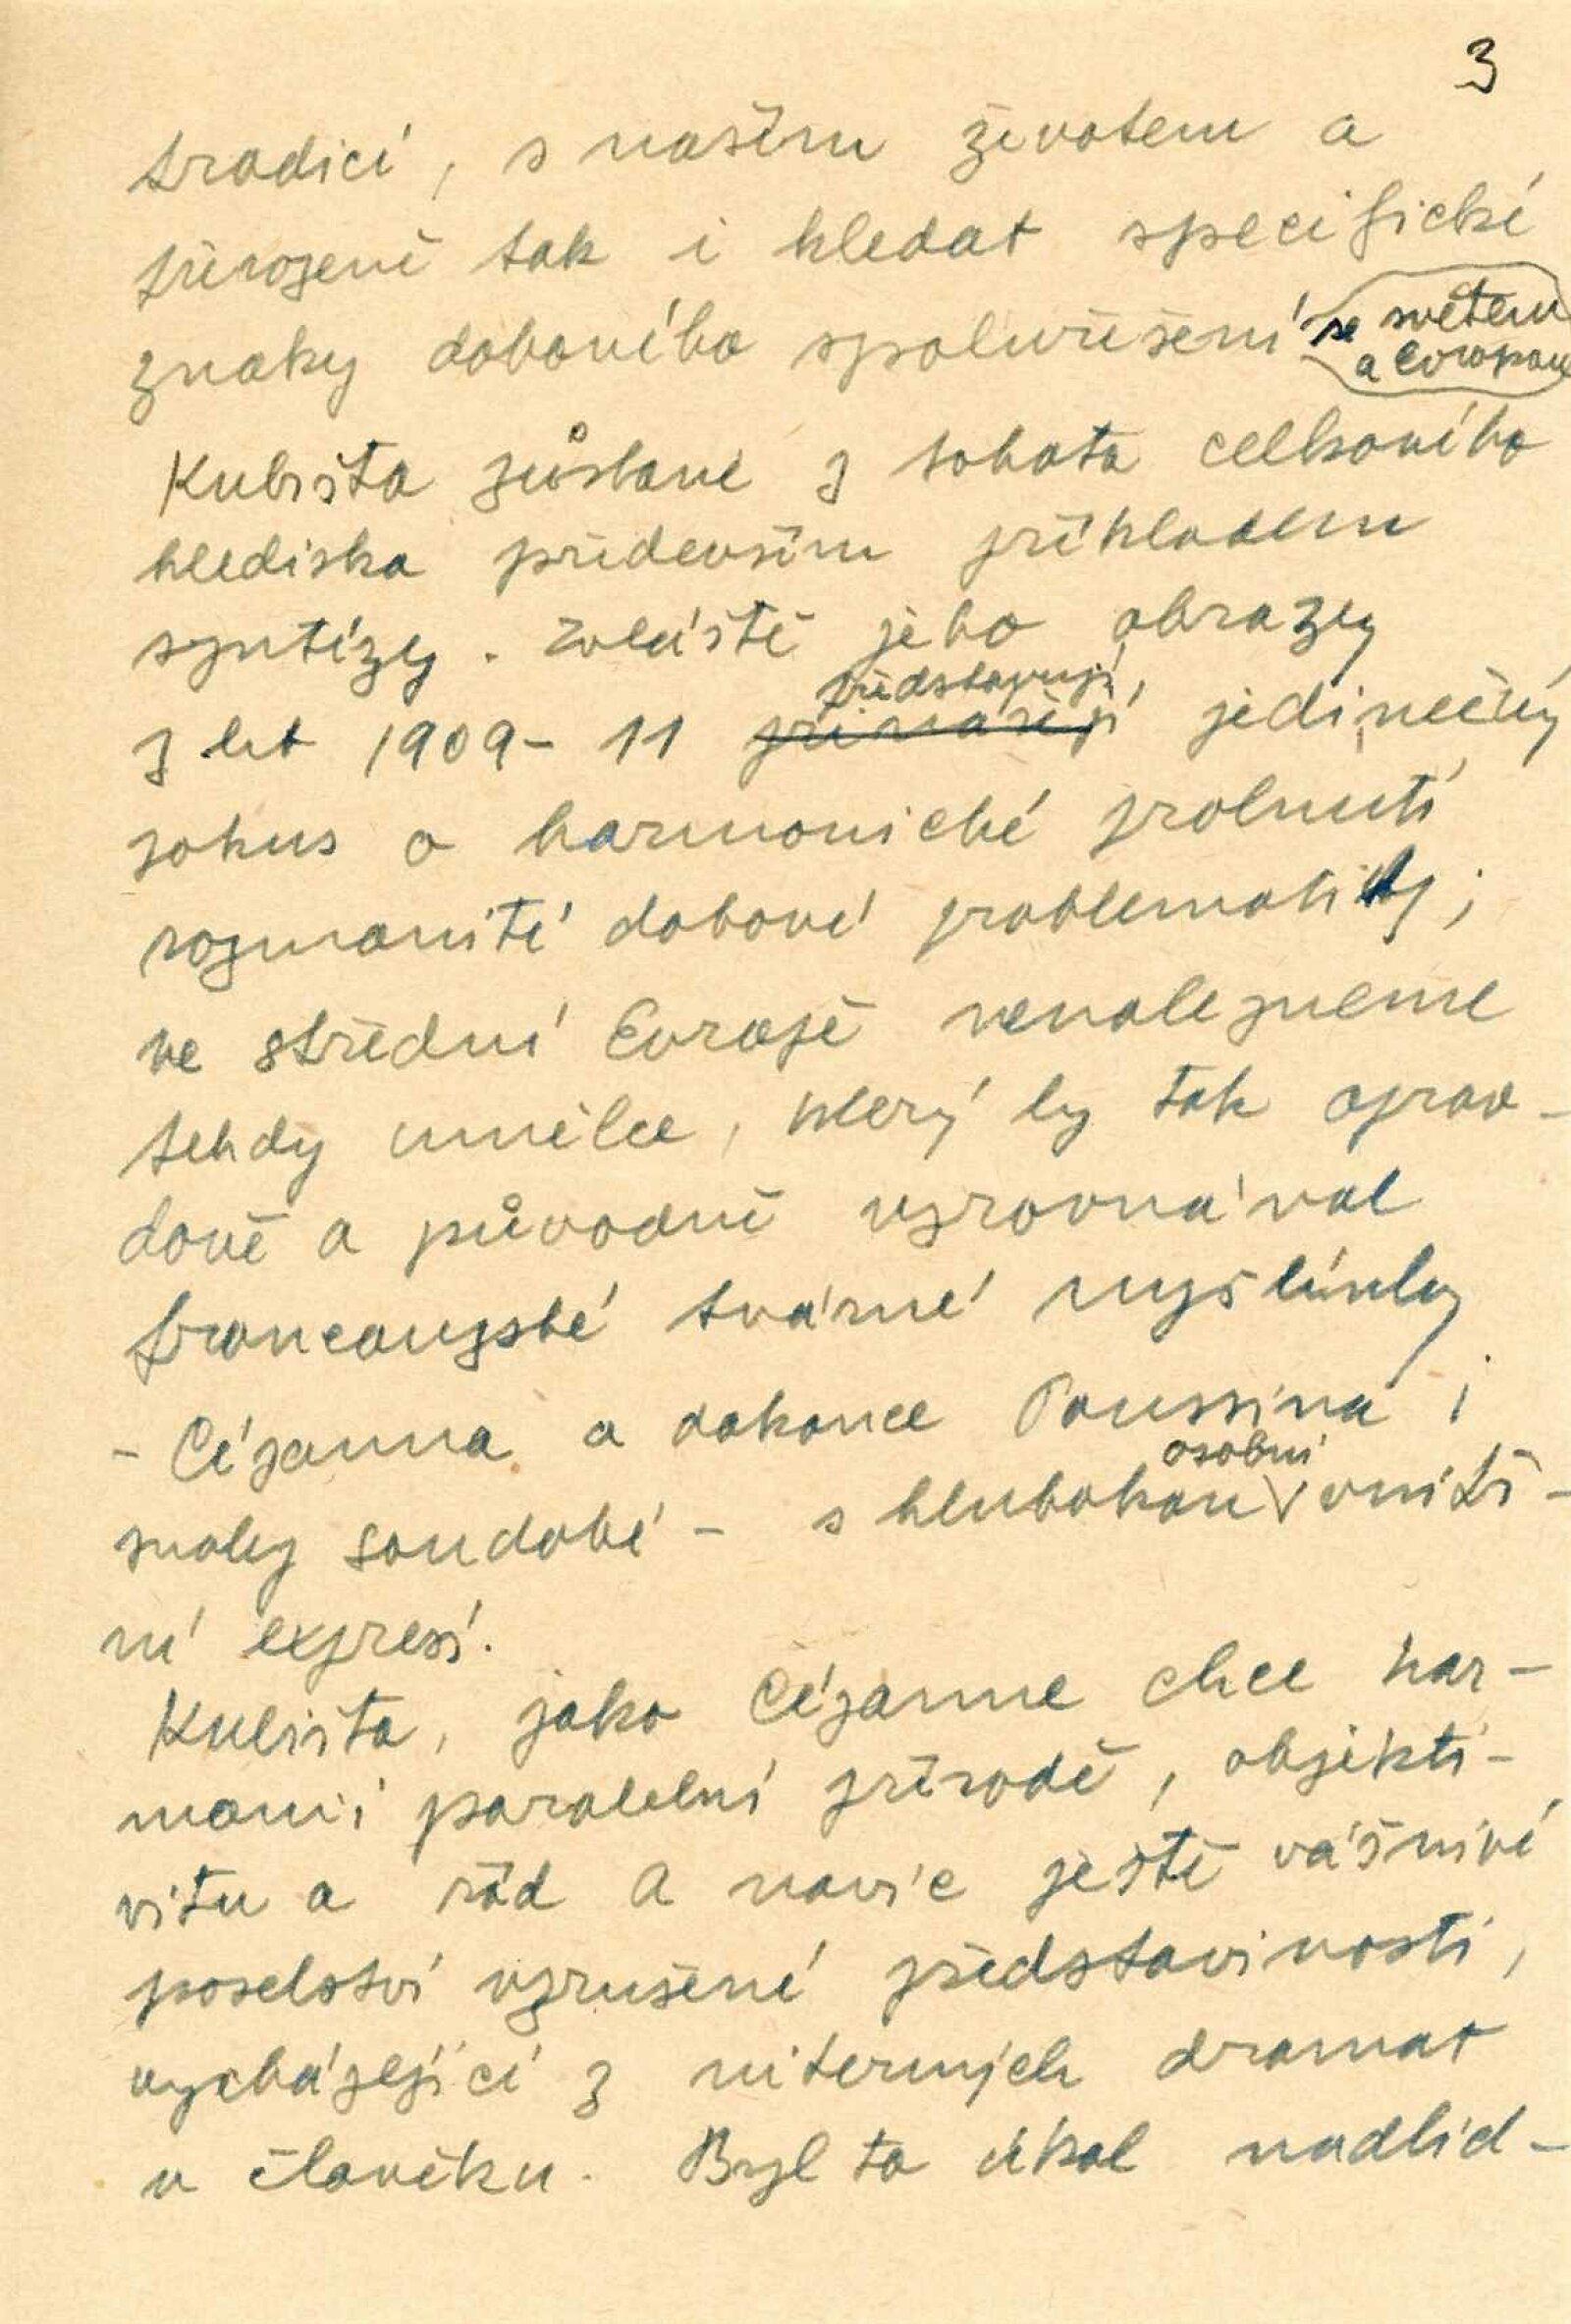 3
tradicí, s naším životem a
přirozeně tak i hledat specifické
znaky dobového spoluvřešení se světem
a Evropou
Kubišta zůstane z tohoto celkového
hlediska především příkladem
syntézy. Zvláště jeho obrazy
představují
z let 1909-11 přinášejí jedinečný
pokus o harmonické prolnutí
rozmanité dobové problematiky;
ve střední Evropě nenalezneme
tehdy umělce, který by tak oprav-
dově a původně vyrovnával
francouzské tvárné myšlenky
- Cézanna a dokonce Poussina i
osobní
snahy soudobé - s hlubokou vniter-
ní expresí.
Kubišta, jako Cézanne chce har-
monii paralelní přírodě, objekti-
vitu a řád a navíc ještě vášnivé
poselství vzrušené představivosti,
vycházející z niterných dramat
v člověku. Byl to úkol nadlid-